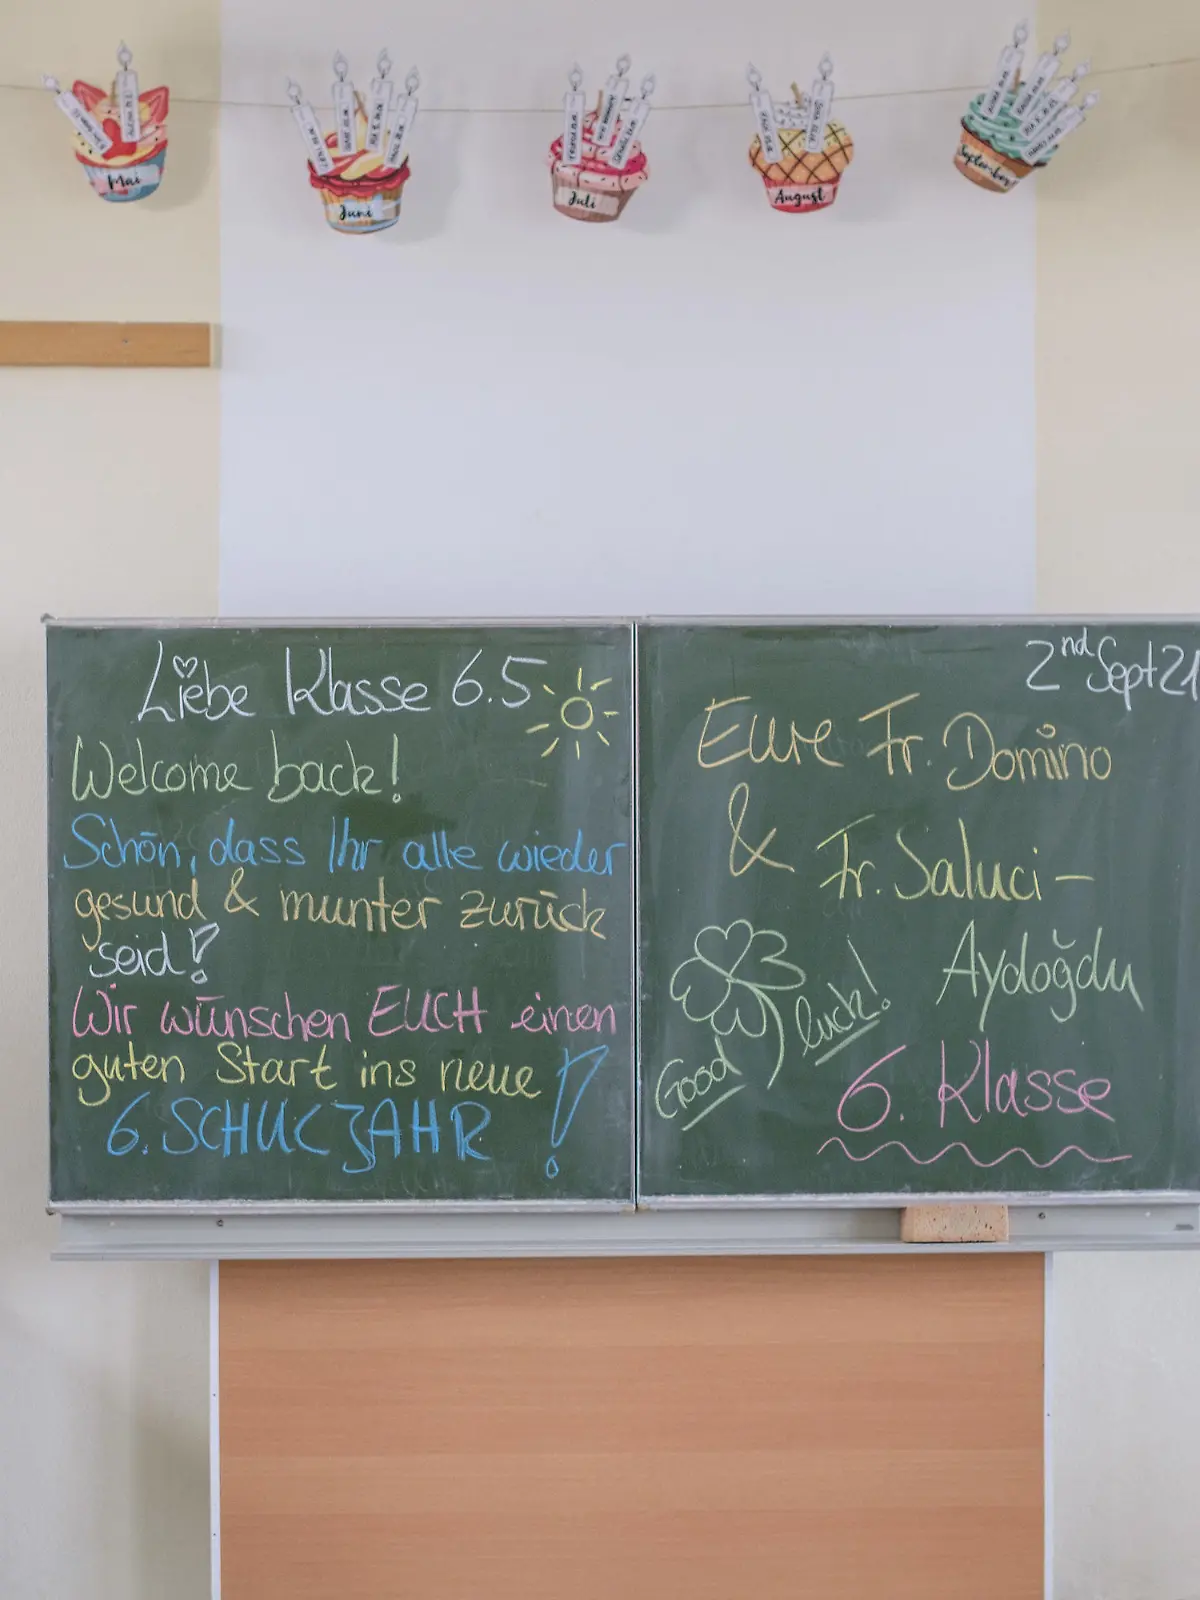 Mai
Juni
Juli
August
September
Liebe Klasse 6.5
Welcome back!
Schön, dass Ihr alle wieder
gesund & munter zurück
seid!
Wir wünschen EUCH einen
guten Start ins neue
6. SCHULJAHR!
2nd Sept 21
Eure Fr. Domino
& Fr. Saluci-
Aydoğdu
Good luck!
6. Klasse